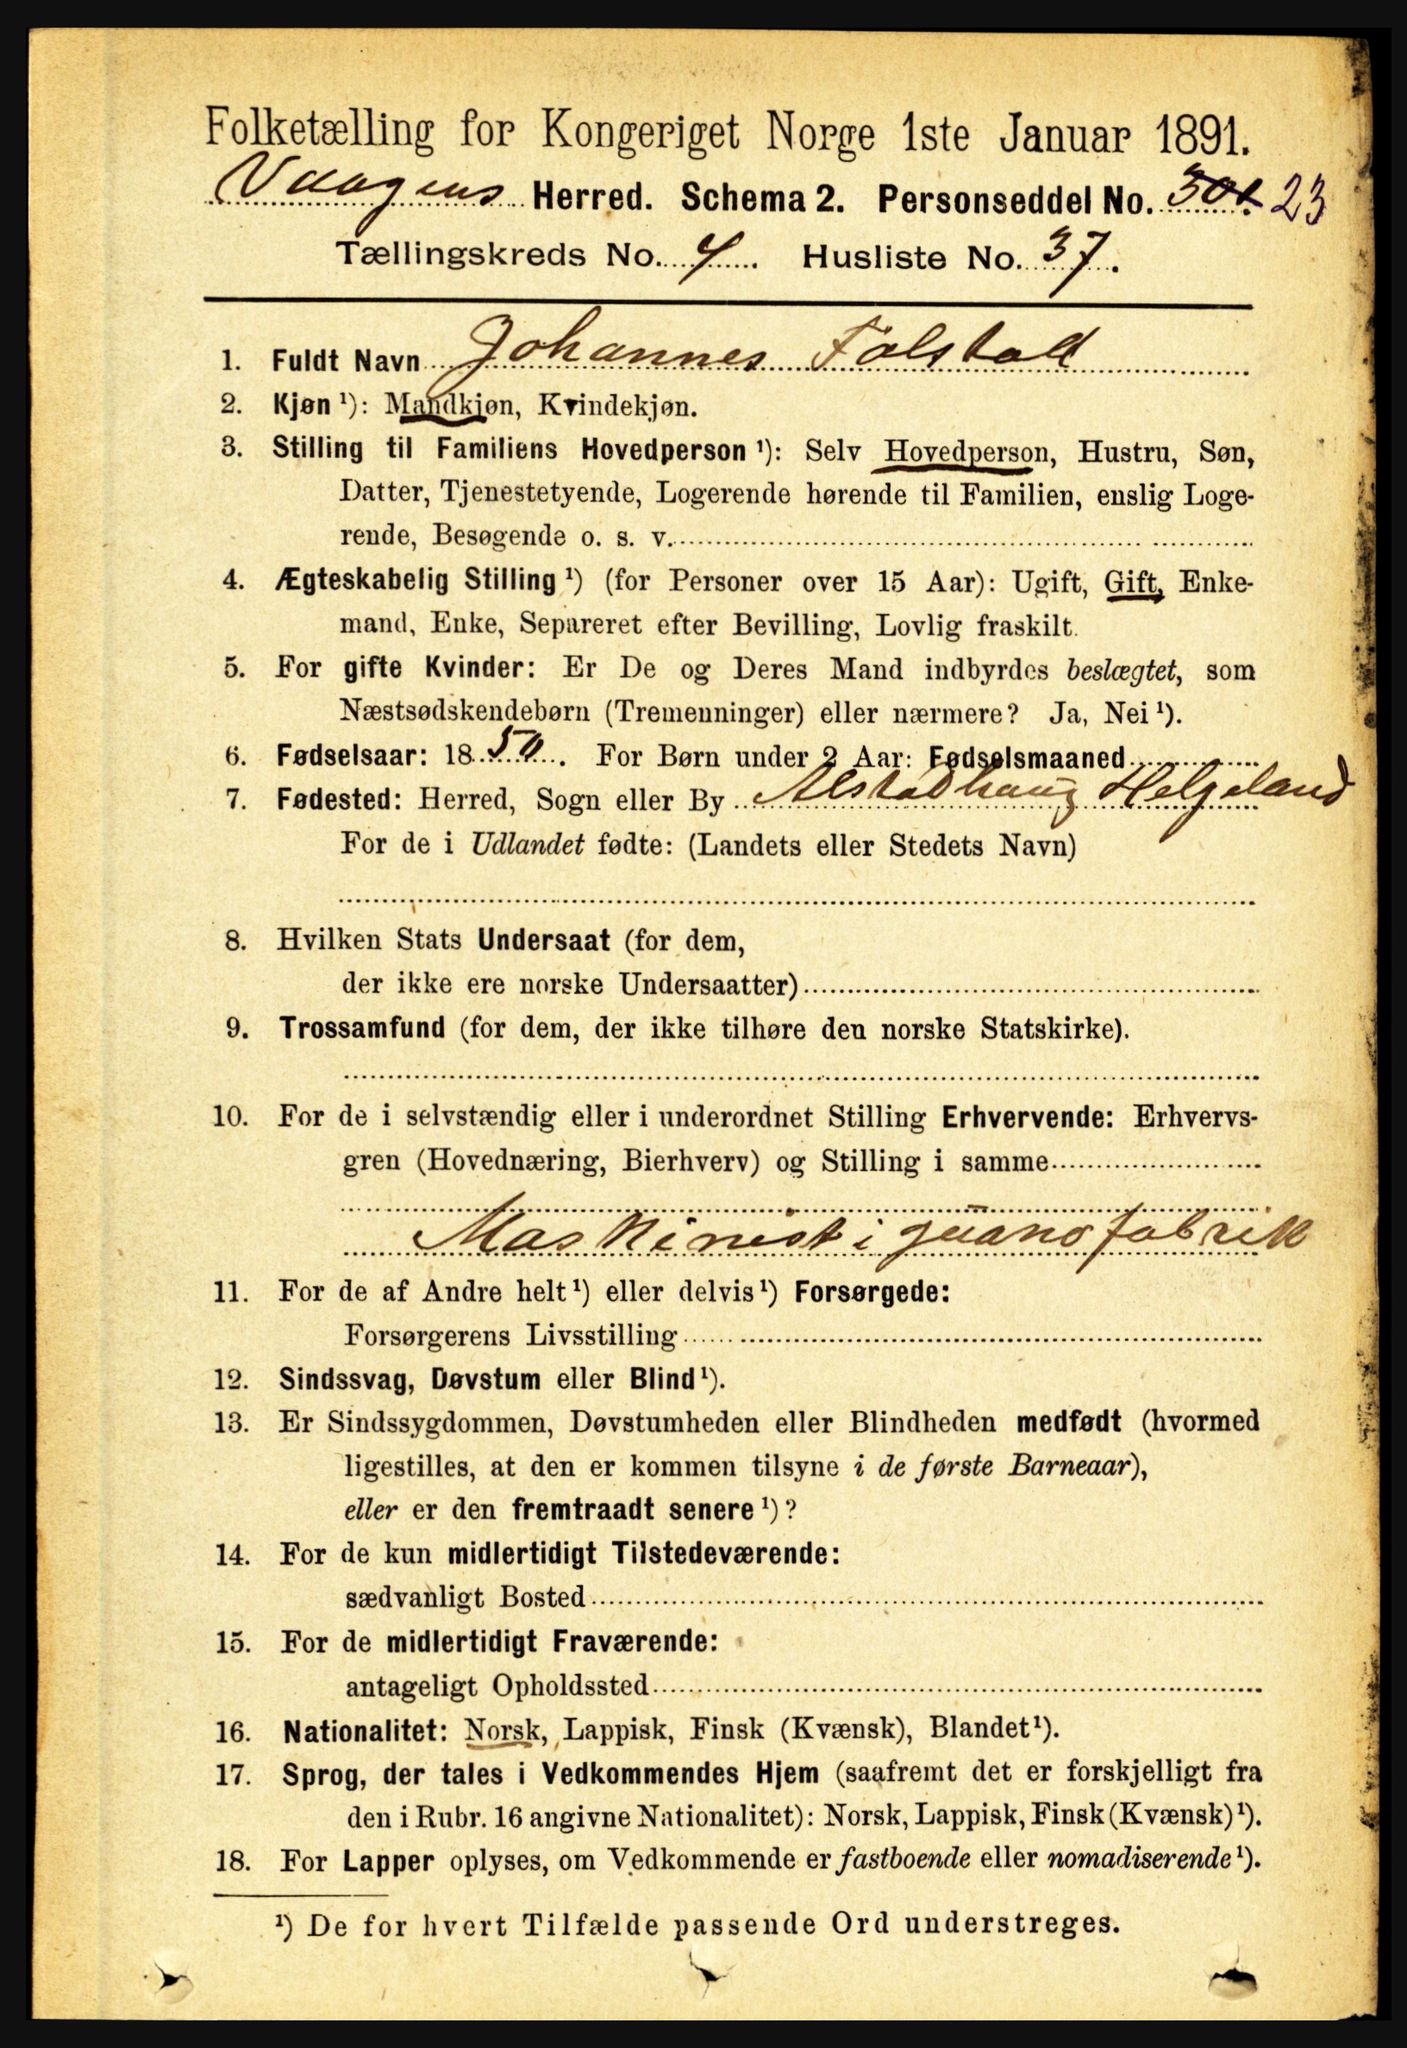 Folketælling for Kongeriget Norge 1ste Januar 1891.
Vaagens Herred. Schema 2. Personseddel No. 301. 23
Tællingskreds No. 4. Husliste No. 37.
1. Fuldt Navn Johannes Falstad
2. Kjøn ¹): Mandkjøn, Kvindekjøn.
3. Stilling til Familiens Hovedperson ¹): Selv Hovedperson, Hustru, Søn,
Datter, Tjenestetyende, Logerende hørende til Familien, enslig Loge-
rende, Besøgende o. s. v.
4. Ægteskabelig Stilling ¹) (for Personer over 15 Aar): Ugift, Gift, Enke-
mand, Enke, Separeret efter Bevilling, Lovlig fraskilt.
5. For gifte Kvinder: Er De og Deres Mand indbyrdes beslægtet, som
Næstsødskendebørn (Tremenninger) eller nærmere? Ja, Nei ¹).
6. Fødselsaar: 1850. For Børn under 2 Aar: Fødselsmaaned
7. Fødested: Herred, Sogn eller By Alstadhaug Helgeland
For de i Udlandet fødte: (Landets eller Stedets Navn)
8. Hvilken Stats Undersaat (for dem,
der ikke ere norske Undersaatter)
9. Trossamfund (for dem, der ikke tilhøre den norske Statskirke).
10. For de i selvstændig eller i underordnet Stilling Erhvervende: Erhvervs-
gren (Hovednæring, Bierhverv) og Stilling i samme
Maskinist i guanofabrik
11. For de af Andre helt ¹) eller delvis ¹) Forsørgede:
Forsørgerens Livsstilling
12. Sindssvag, Døvstum eller Blind ¹).
13. Er Sindssygdommen, Døvstumheden eller Blindheden medfødt (hvormed
ligestilles, at den er kommen tilsyne i de første Barneaar),
eller er den fremtraadt senere ¹)?
14. For de kun midlertidigt Tilstedeværende:
sædvanligt Bosted
15. For de midlertidigt Fraværende:
antageligt Opholdssted
16. Nationalitet: Norsk, Lappisk, Finsk (Kvænsk), Blandet ¹).
17. Sprog, der tales i Vedkommendes Hjem (saafremt det er forskjelligt fra
den i Rubr. 16 angivne Nationalitet): Norsk, Lappisk, Finsk (Kvænsk) ¹).
18. For Lapper oplyses, om Vedkommende er fastboende eller nomadiserende ¹).
¹) De for hvert Tilfælde passende Ord understreges.